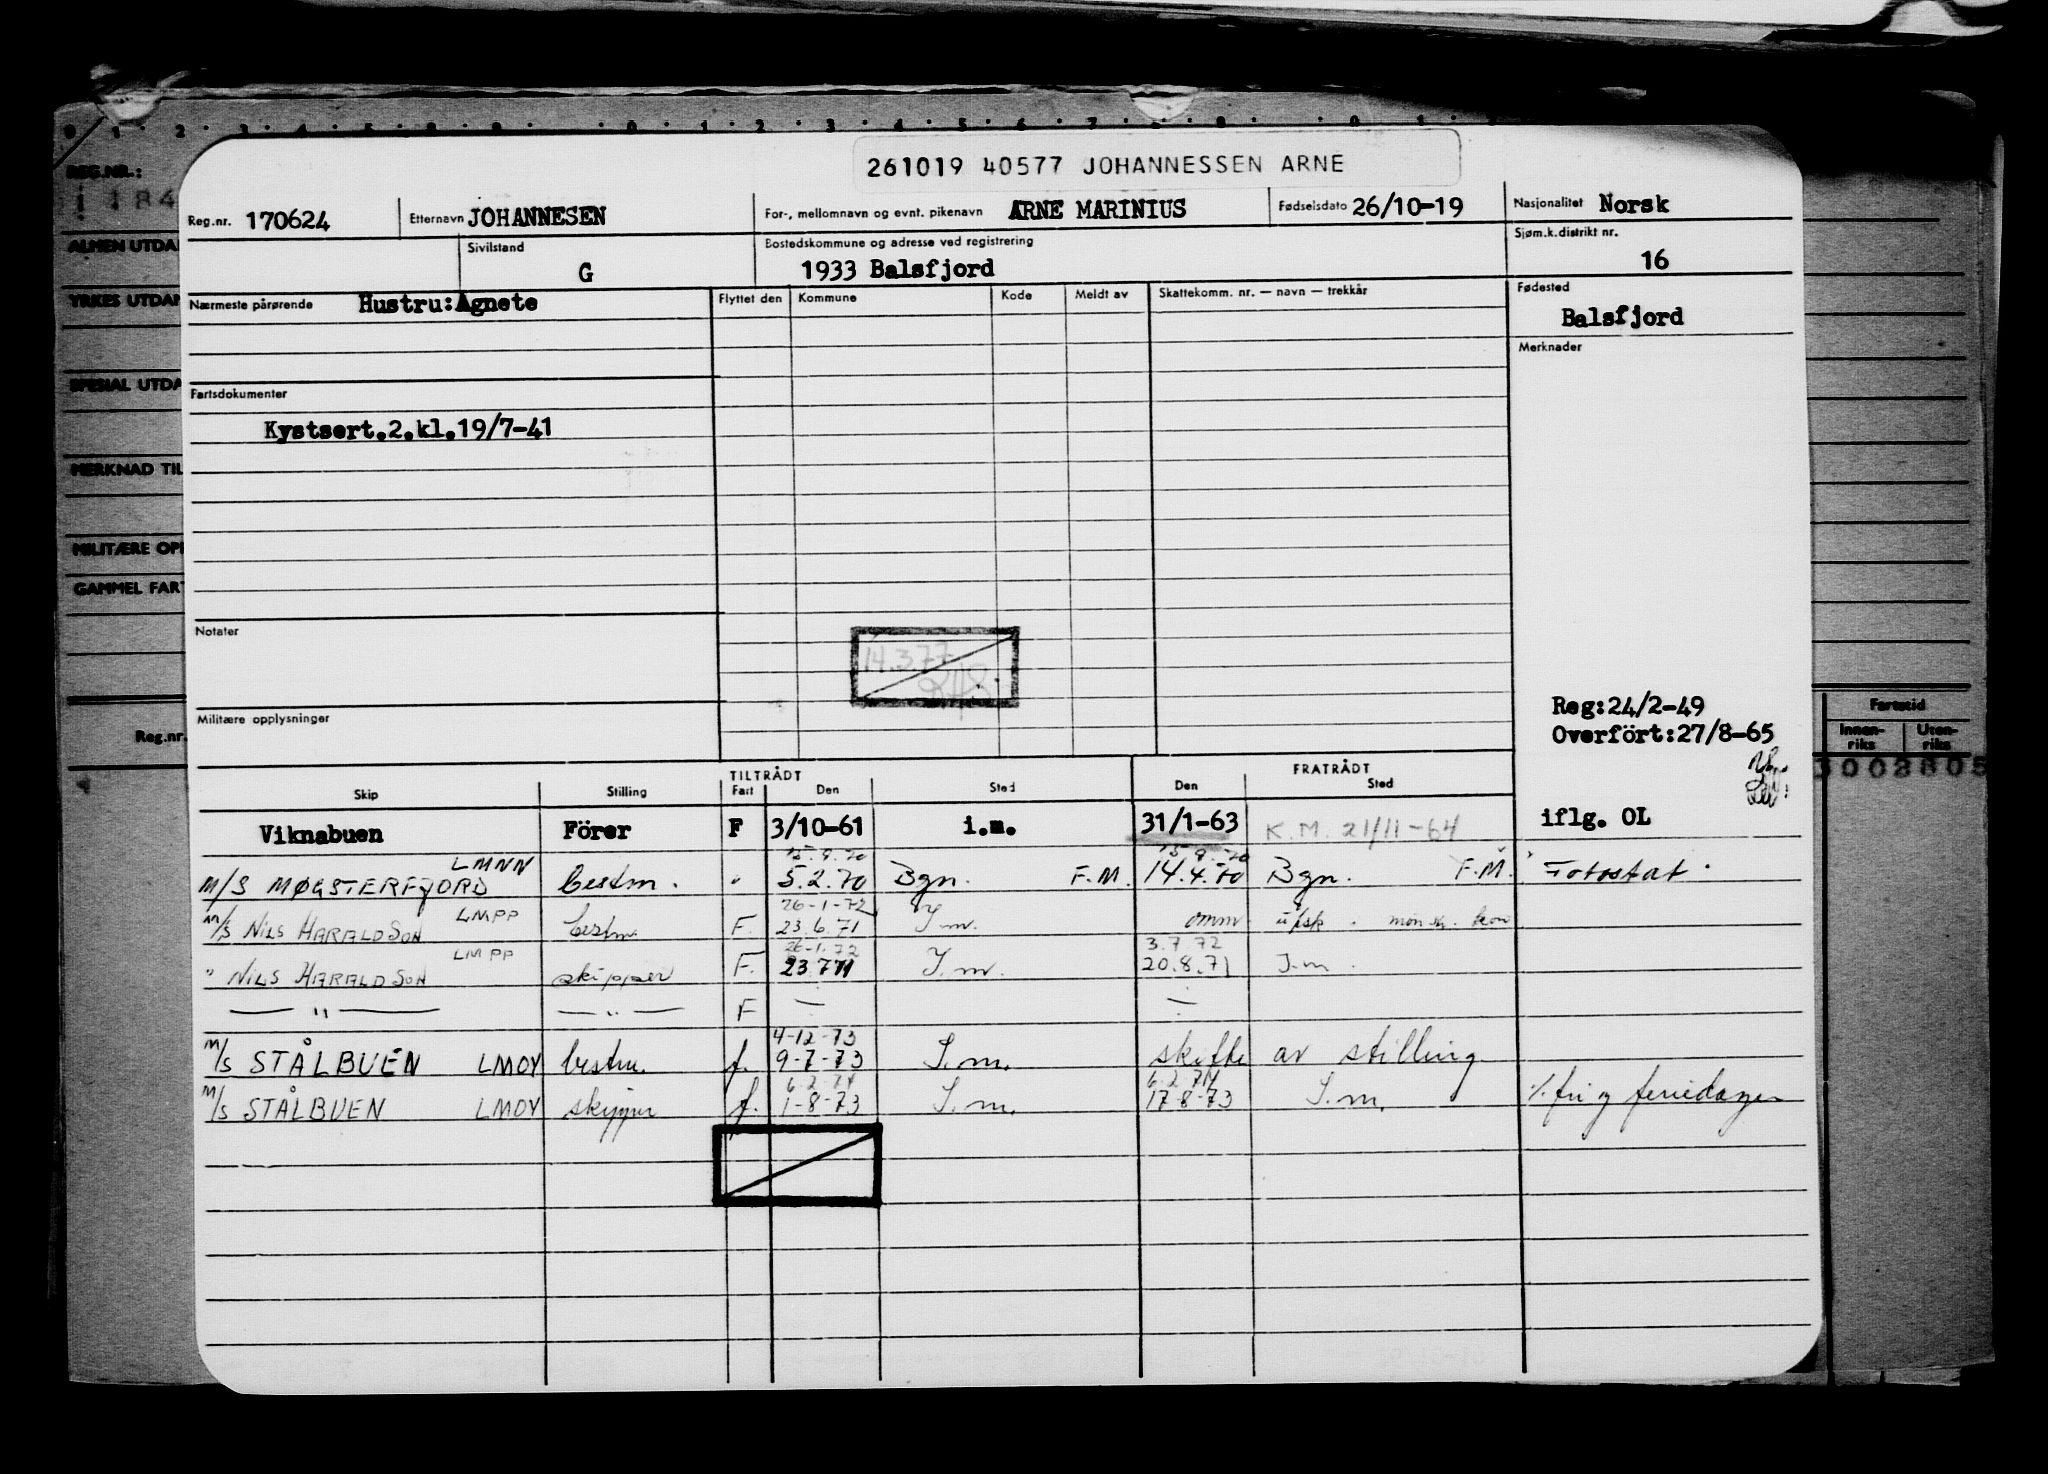 0 1 2 3 4 5 0 1 2 3 4 5 6 7 8 9 0 1
261019 40577 JOHANNESSEN ARNE
REG.NR.:
Reg.nr. 170624 Etternavn JOHANNESEN For-, mellomnavn og evnt. pikenavn ARNE MARINIUS Fødselsdato 26/10-19 Nasjonalitet Norsk
ALMEN UTDA
Sivilstand G Bostedskommune og adresse ved registrering 1933 Balsfjord Sjøm.k.distrikt nr. 16
YRKES UTDAN
Nærmeste pårørende Hustru:Agnete Flyttet den Kommune Kode Meldt av Skattekomm. nr. — navn — trekkår Fødested
Balsfjord
Merknader
SPESIAL UTDA
Fartsdokumenter
Kystsert.2.kl.19/7-41
MERKNAD TIL
MILITÆRE OPP
GAMMEL FART
Notater
14.3.77
Reg:24/2-49
Militære opplysninger
Overført:27/8-65
Reg.nr.
Fartstid
Innen-riks Uten-riks
3002805
TILTRÅDT FRATRÅDT
Skip Stilling Fart Den Sted Den Sted
Viknabuen Förer F 3/10-61 i.m. 31/1-63 K.M. 21/11-64 iflg. OL
LMNN 15.9.70 15.9.70
M/S MØGSTERFJORD bestm. " 5.2.70 Bgn. F.M. 14.4.70 Bgn. F.M. Fotostat.
LMPP 26-1-72
M/S NILS HARALDSON bestm. F. 23.6.71 I.m. omm.
LMPP 26-1.72 3.7 72
" NILS HARALDSON skipper F. 23.7 71 I.m. 20.8.71 I.m.
— " — — " — F ÷ ÷
4-12-73
M/S STÅLBUEN LMOY bestm. f. 9-7-73 I.m. skifte av stilling
6.2.74 6.2.74
M/S STÅLBUEN LMOY skipper f. 1-8-73 I.m. 17-8-73 I.m. ./. fri og feriedager